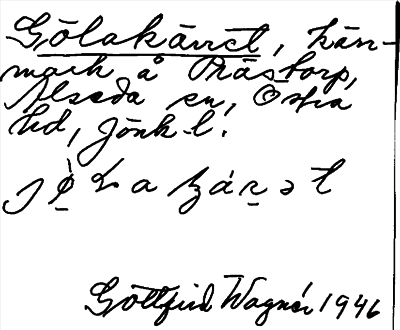 Gölakärret, kärr-
mark å Prästorp,
Alseda sn, Östra
hd, Jönk. l.
Gottfrid Wagnér 1946